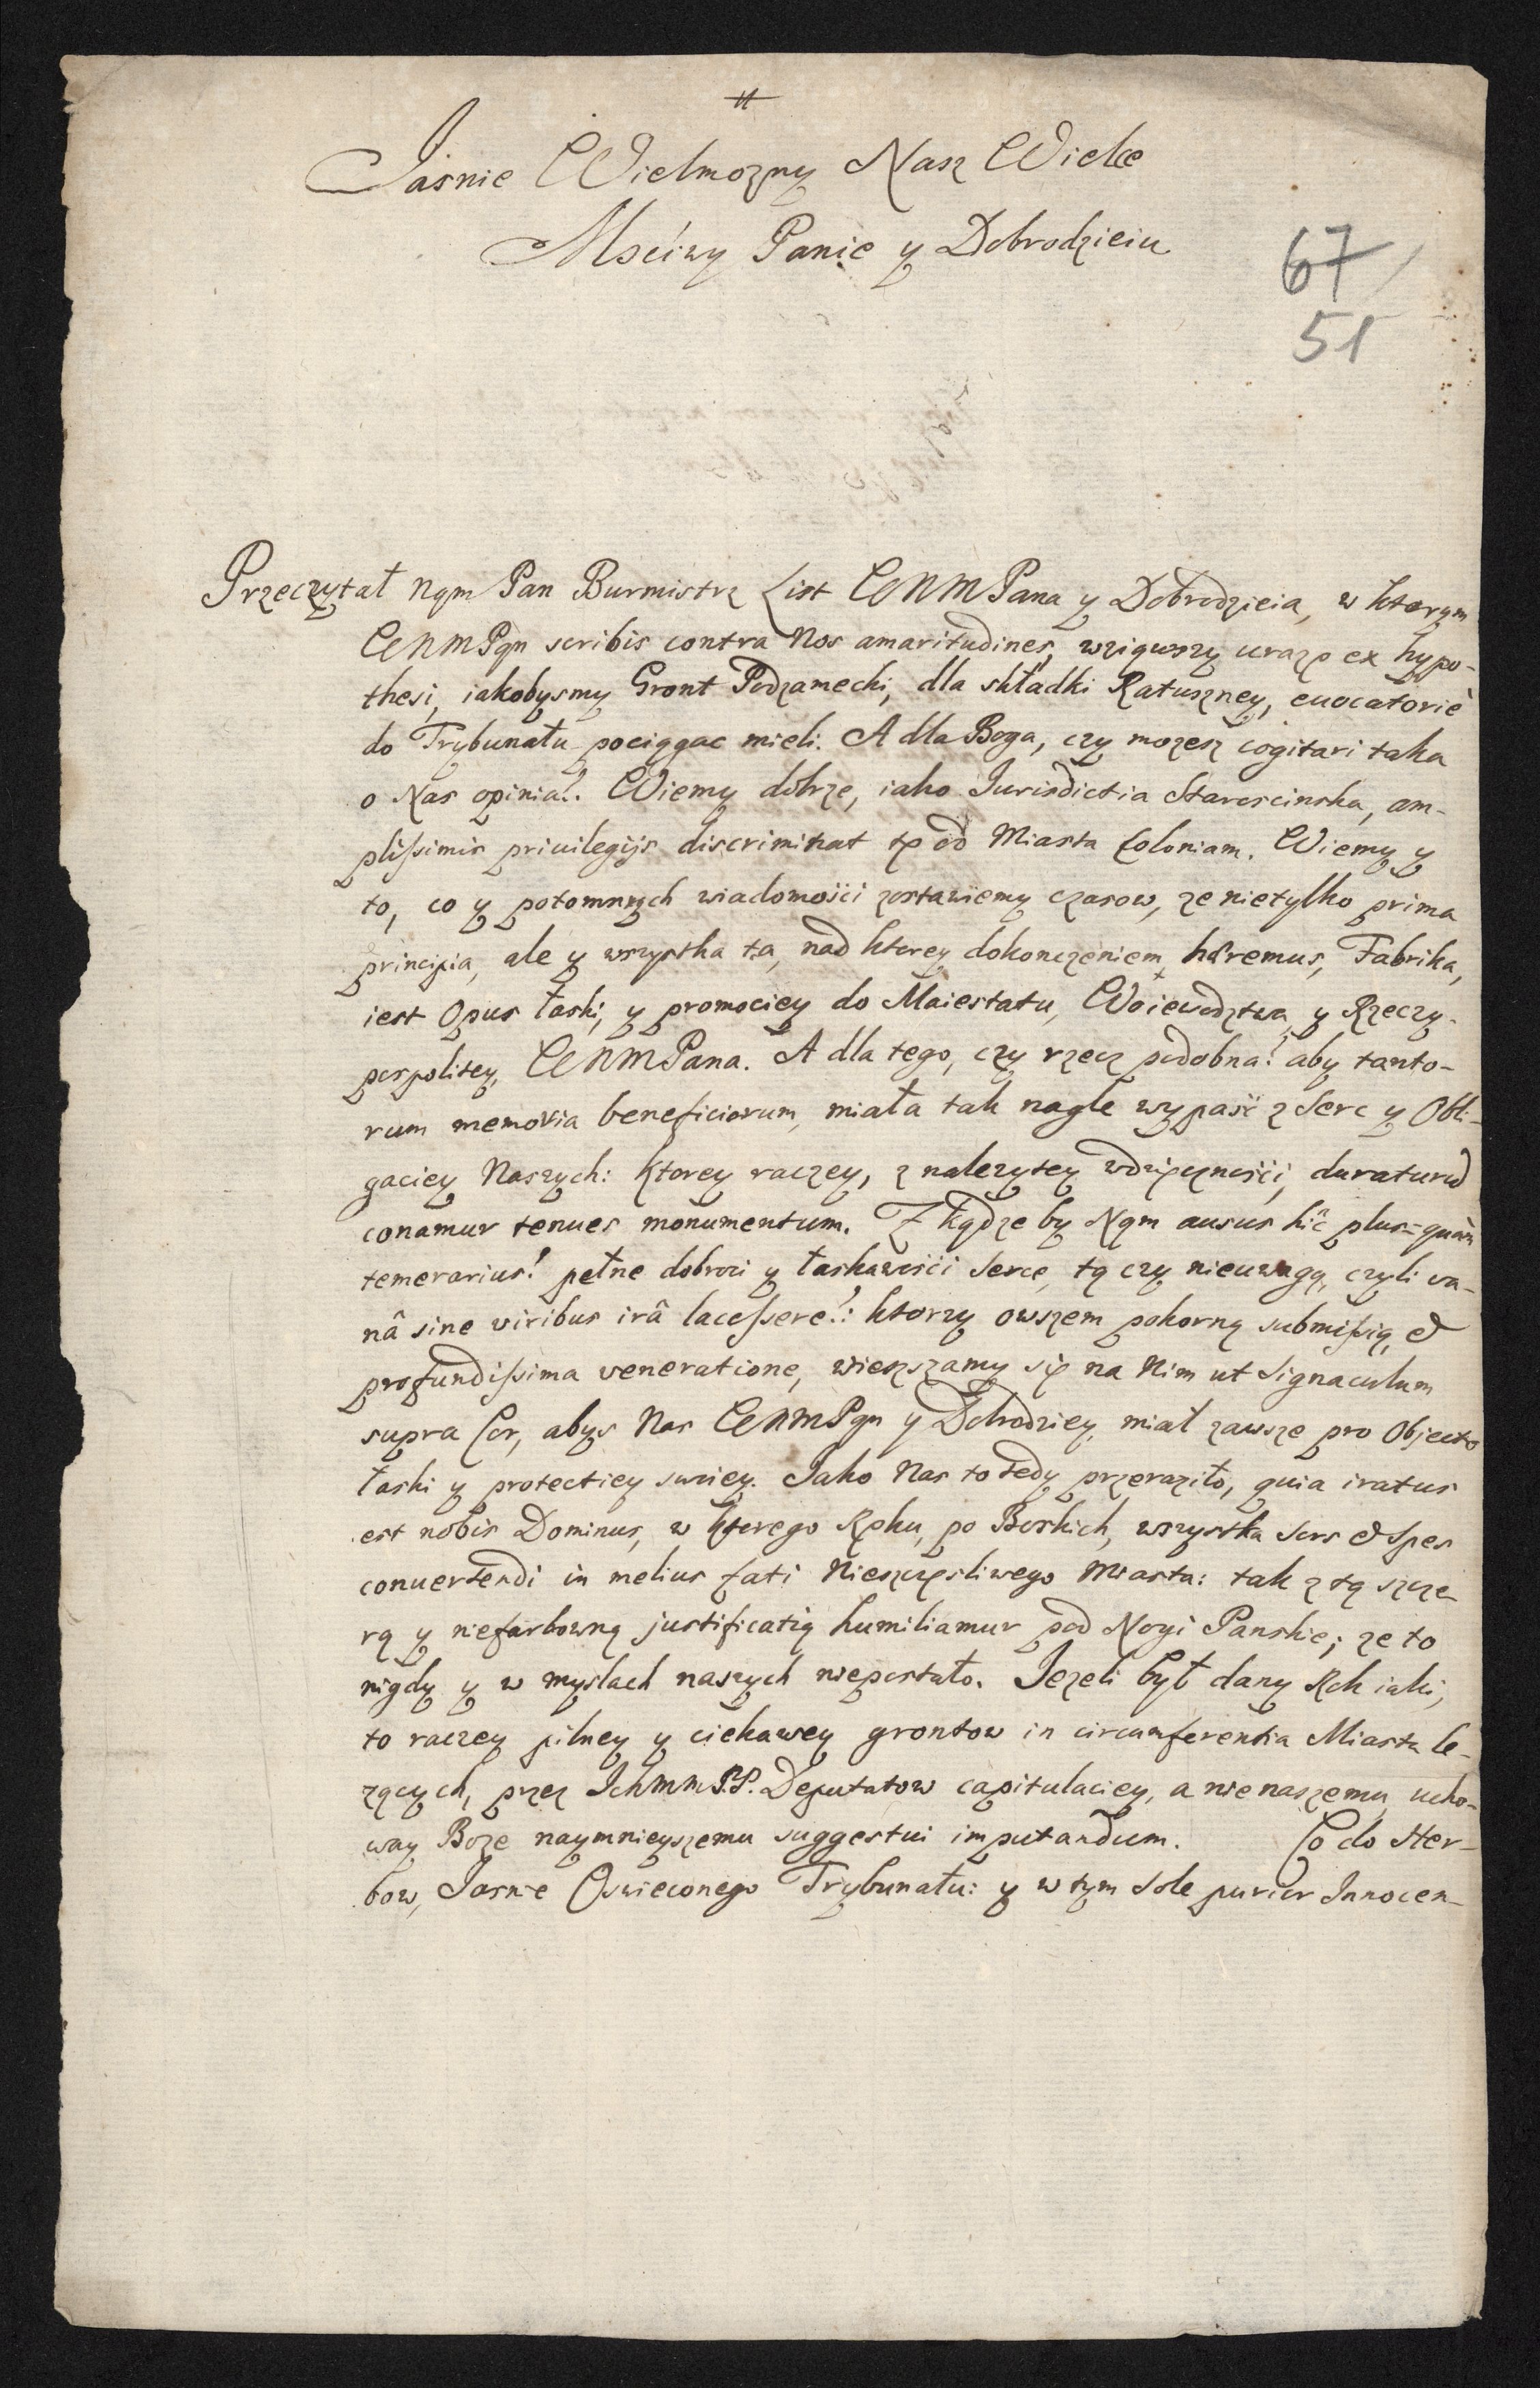 Jasnie Wielmozny Nasz Wielce
Mściwy Panie y Dobrodzieiu
67
51
Przeczytał Nąm Pan Burmistrz List WNMPana y Dobrodzieia, w ktorym
WNMPąn scribis contra Nos amaritudines, wziąwszy urazę ex hypo-
thesi, iakobysmy Gront Podzamecki, dla składki Ratuszney, euocatoriè
do Trybunału pociągac mieli. A dla Boga, czy mozesz cogitari taka
o Nas opinia?. Wiemy dobrze, iako Jurisdictia Staroscinska, am-
plissimis priuilegijs discriminat tę od Miasta Coloniam. Wiemy y
to, co y potomnych wiadomości zostawiemy czasow, ze nietylko prima
principia, ale y wszystka ta, nad ktorey dokonczeniem hæremus, Fabrika,
iest Opus łaski, y promociey do Maiestatu, Woiewodztwa y Rzeczy-
pospolitey, WNMPana. A dla tego, czy rzecz podobna? aby tanto-
rum memoria beneficiorum, miała tak nagle wypaść z Serc y Obli-
gaciey Naszych: Ktorey raczey, z nalezytey wdzięcznośći, duraturũ
conamur tenues monumentum. Z kądze by Nąm ausus hic plus-quàm
temerarius! pełne dobroci y łaskawości Serce, tą czy nieuwagą, czyli va-
nâ sine viribus irâ lacessere?: ktorzy owszem pokorną submissią, et
profundissima veneratione, wieszszamy się na Nim ut Signaculum
supra Cor, abys Nas WNMPąn y Dobrodziey, miał zawsze pro Objecto
łaski y protectiey swoiey. Jako Nas to tedy przeraziło, quia iratus
est nobis Dominus, w ktorego Ręku, po Boskich, wszystka Sors et Spes
conuertendi in melius fati Nieszczęsliwego Miasta: tak z tą szcze-
rą y niefarbowną justificatią humiliamur pod Nogi Panskie; ze to
nigdy y w myslach naszych niepostało. Jezeli był dany Rok iaki,
to raczey pilney y ciekawey grontow in circumferentia Miasta le-
zących, przez Ichmm P.P. Deputatow capitulaciey, a nie naszemu, ucho-
way Boze naymnieyszemu suggestui imputandum. Co do Her-
bow, Jasnie Oswieconego Trybunału: y w tym Sole purior Innocen-